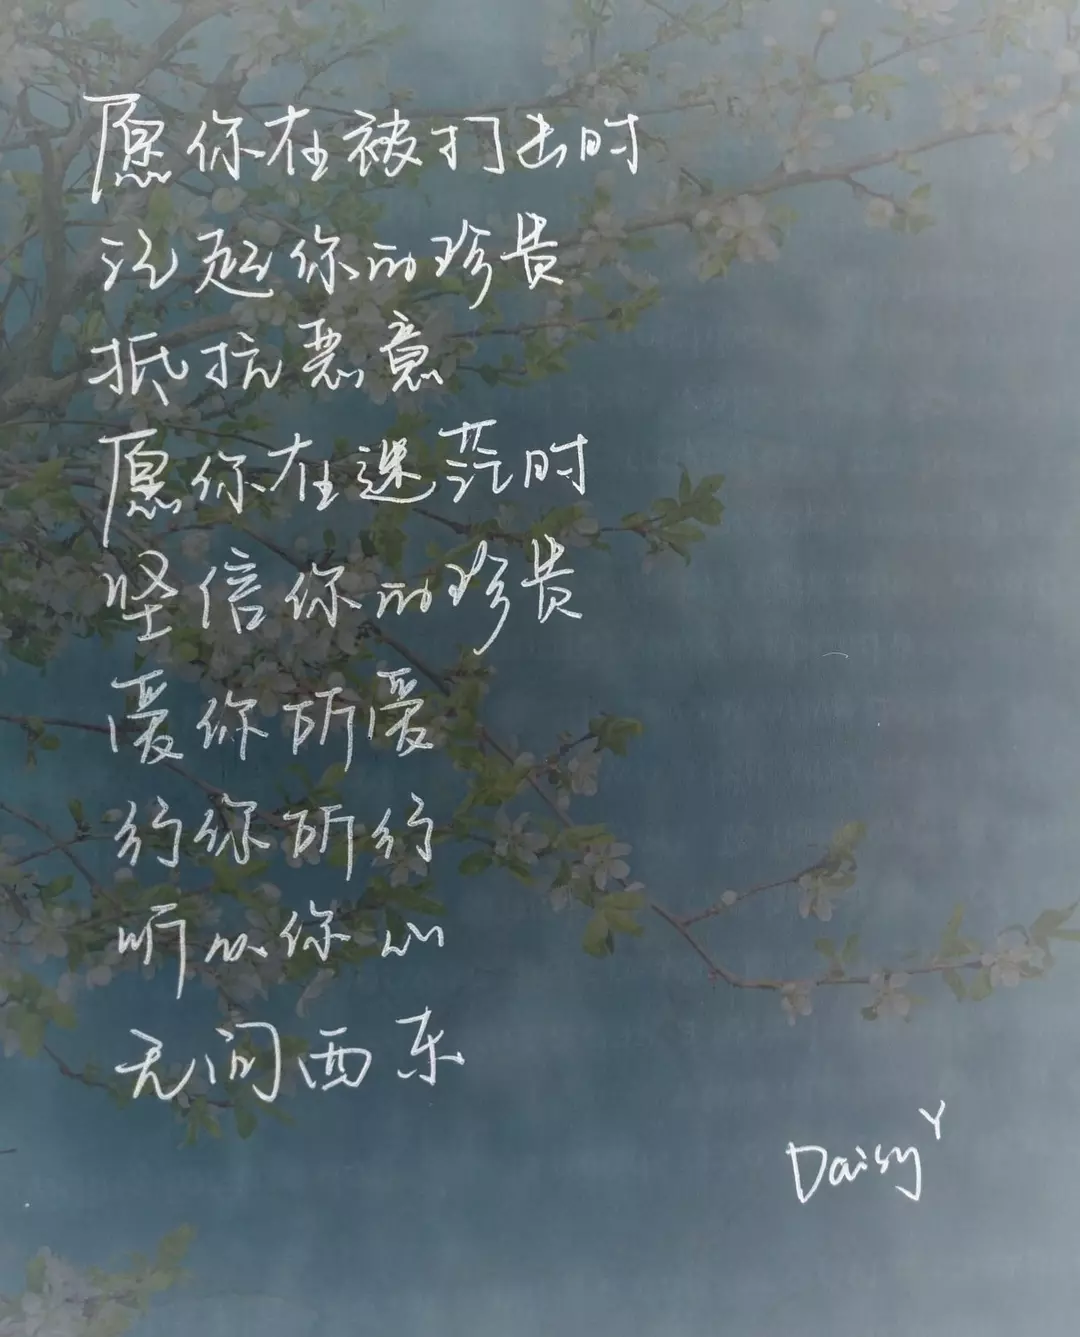 愿你在被打击时
记起你的珍贵
抵抗恶意
愿你在迷茫时
坚信你的珍贵
爱你所爱
行你所行
听从你心
无问西东
Daisy Y